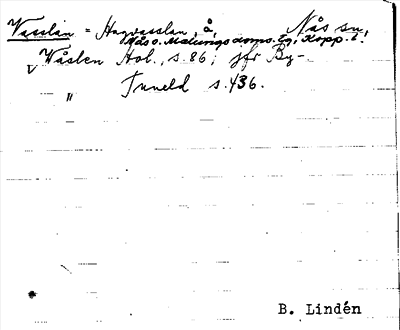 Vasslan = Hagvasslan, å, Nås sn,
Nås o. Malungs doms. hg, Kopp. l.
Wåslen Hol., s. 86; jfr By-
" Tuneld s. 436.
B. Lindén